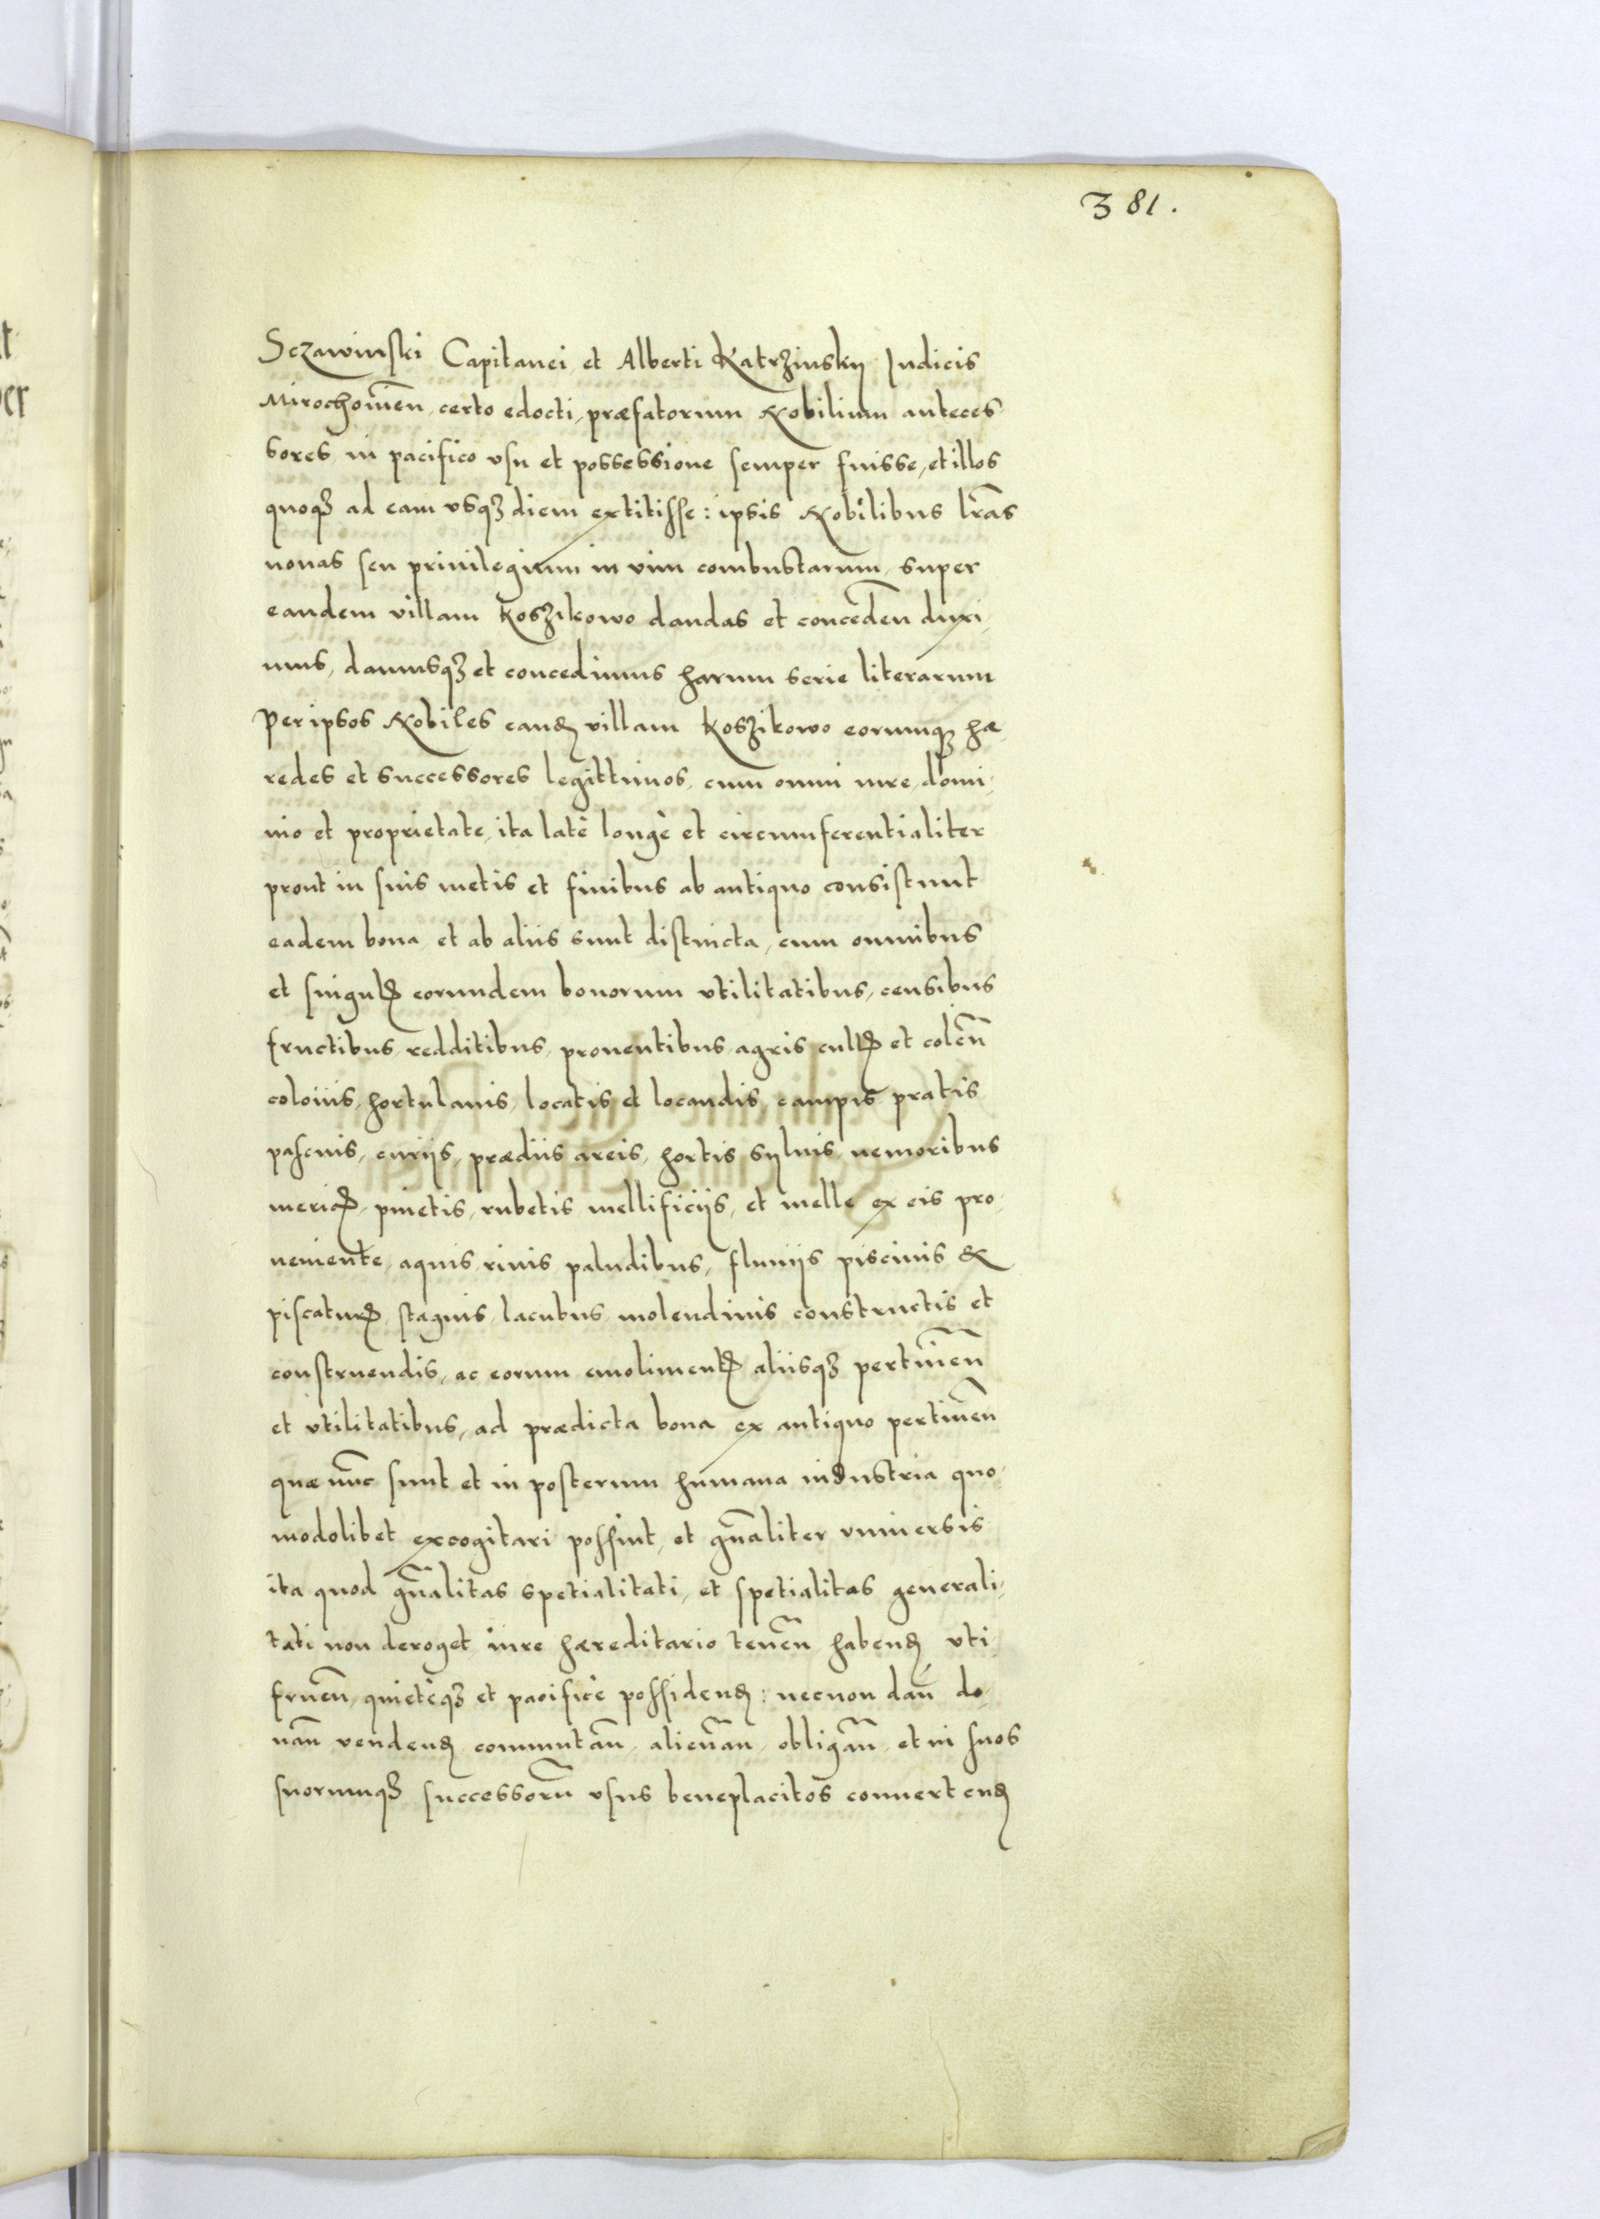 381.
Sczawinski Capitanei et Alberti Katrzinskij Iudicis
Mirochowien̄, certo edocti, præfatorum Nobilium anteces
sores in pacifico vsu et possessione semper fuisse, et illos
quoqꝫ ad eam vsqꝫ diem extitisse: ipsis Nobilibus lr̄as
nouas seu priuilegium in vim combustarum, super
eandem villam Koszikowo dandas et conceden̄ duxi,
mus, damusqꝫ et concedimus harum serie literarum
Per ipsos Nobiles eanđ villam Koszikowo eorumqꝫ hæ,
redes et successores legittimos, cum omni iure, domi,
nio et proprietate, ita latè longè et circumferentialiter
prout in suis metis et finibus ab antiquo consistunt
eadem bona, et ab aliis sunt distincta, cum omnibus
et singulꝭ eorundem bonorum vtilitatibus, censibus
fructibus, redditibus, prouentibus, agris cultꝭ et colen̄
coloniis, hortulanis, locatis et locandis, campis pratis
pascuis, curijs, prædiis areis, hortis syluis nemoribus
mericꝭ, pinetis, rubetis mellificijs, et melle ex eis pro,
ueniente, aquis, riuis paludibus, fluuijs piscinis &
piscaturꝭ, stagnis, lacubus molendinis constructis et
construendis, ac eorum emolimentꝭ aliisqꝫ pertinen̄
et vtilitatibus, ad prædicta bona ex antiquo pertinen̄
quæ nūc sunt et in posterum humana industria quo,
modolibet excogitari possint, et gn̄aliter vniuersis
ita quod gn̄alitas spetialitati, et spetialitas generali,
tati non deroget iure hæreditario tenen̄ habenđ vti,
fruen̄, quietèqꝫ et pacificè possidenđ: necnon dan̄ do,
nan̄ vendenđ commutan̄, alienan̄, obligan̄, et in suos
suorumqꝫ successorū vsus beneplacitos conuertenđ